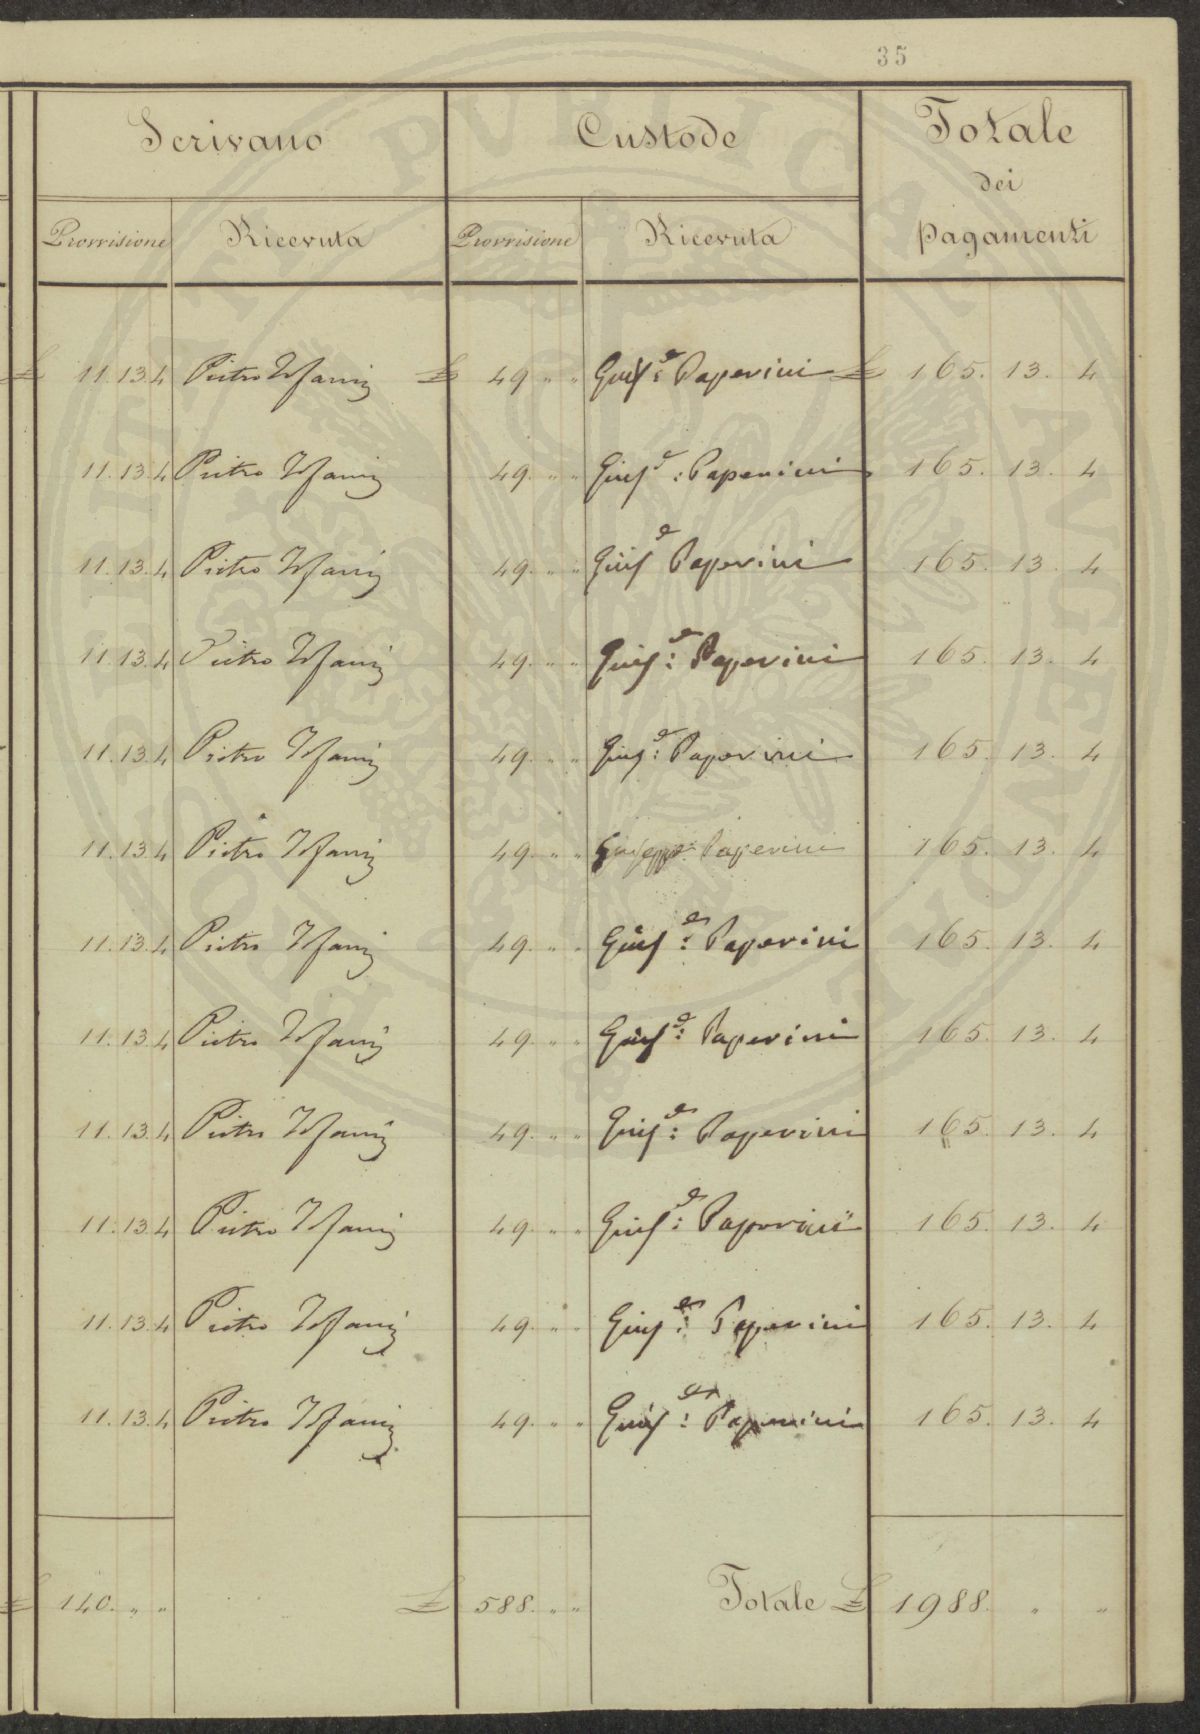 35
Scrivano Custode Totale
dei
Provvisione Ricevuta Provvisione Ricevuta pagamenti
£ 11. 13. 4 Pietro £ 49 " " Gius.e: Paperini £ 165. 13. 4
11. 13. 4 Pietro 49. " " Gius.e: Paperini 165. 13. 4
11. 13. 4 Pietro 49. " " Gius.e Paperini 165. 13. 4
11. 13. 4 Pietro 49. " " Gius.e: Paperini 165. 13. 4
11. 13. 4 Pietro 49. " " Gius.e: Paperini 165. 13. 4
11. 13. 4 Pietro 49. " " Giuseppe Paperini 165. 13. 4
11. 13. 4 Pietro 49. " " Gius.e: Paperini 165. 13. 4
11. 13. 4 Pietro 49. " " Gius.e: Paperini 165. 13. 4
11. 13. 4 Pietro 49. " " Gius.e: Paperini 165. 13. 4
11. 13. 4 Pietro 49. " " Gius.e: Paperini 165. 13. 4
11. 13. 4 Pietro 49. " " Gius.e: Paperini 165. 13. 4
11. 13. 4 Pietro 49. " " Gius.e: Paperini 165. 13. 4
£ 140. " " £ 588. " " Totale £ 1988. " "